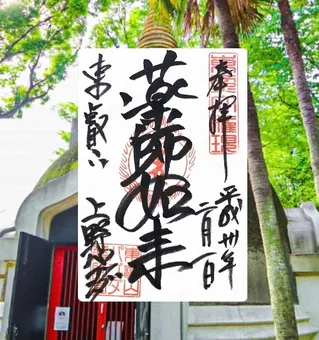 奉拝
平成卅年
二月一日
薬師如来
東叡山
上野大仏